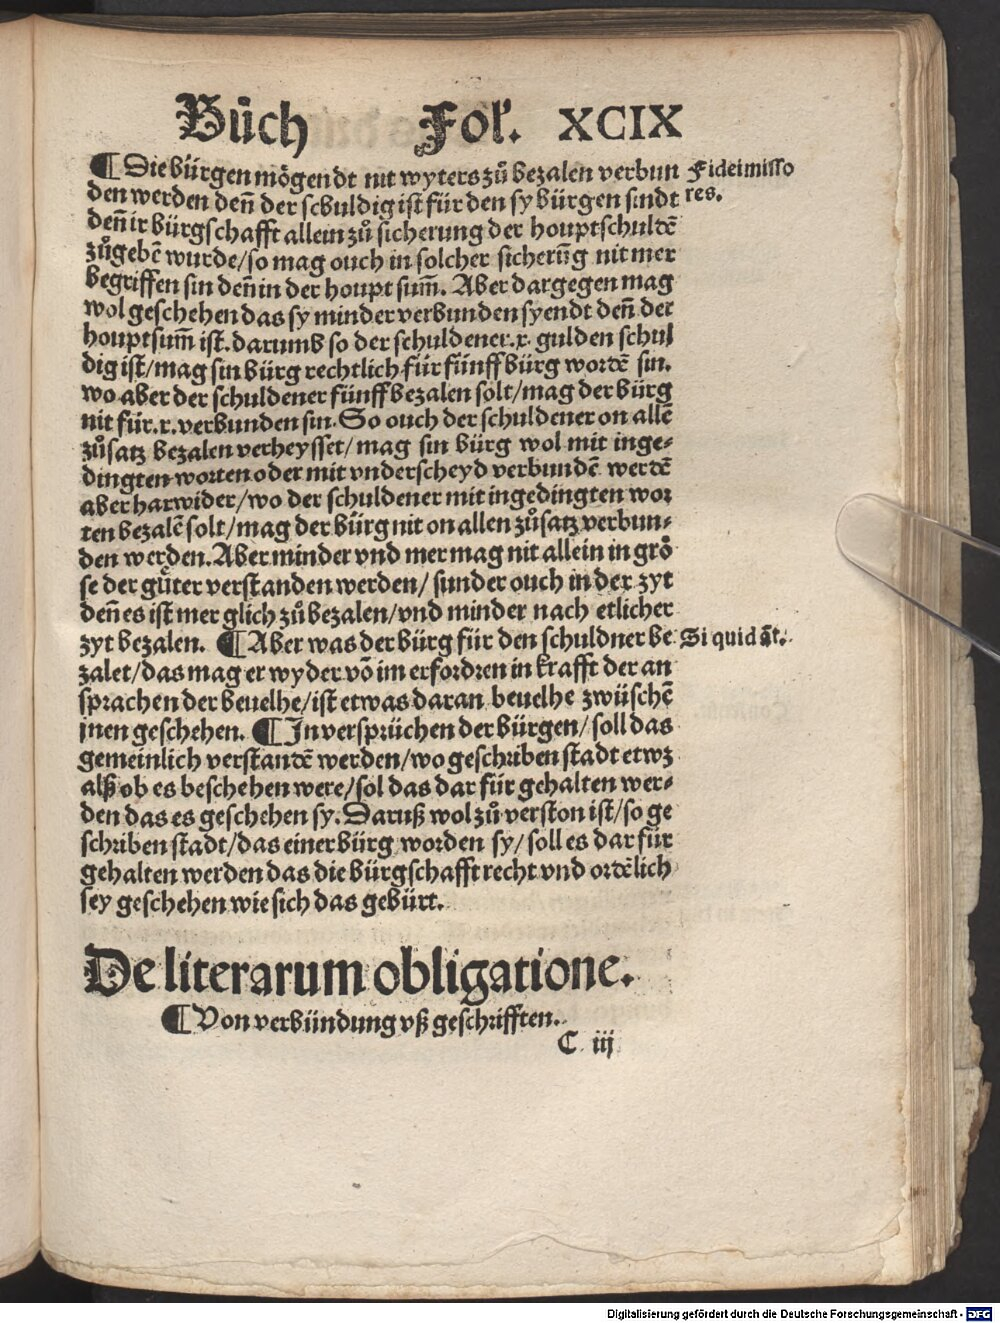 Bůch Fol'. XCIX
¶ Die bürgen mögendt nit wyters zů bezalen verbun
den werden deñ der schuldig ist für den sy bürgen sindt
deñ ir bürgschafft allein zů sicherung der houptschuldē
zůgebē wurde/so mag ouch in solcher sicherūg nit mer
begriffen sin deñ in der houpt sum̄. Aber dargegen mag
wol geschehen das sy minder verbunden syendt deñ der
houptsum̄ ist. darumb so der schuldener .x. gulden schul
dig ist/mag sin bürg rechtlich für fünff bürg wordē sin.
wo aber der schuldener fünff bezalen solt/mag der bürg
nit für .x. verbunden sin. So ouch der schuldener on allē
zůsatz bezalen verheysset/ mag sin bürg wol mit inge⸗
dingten worten oder mit vnderscheyd verbundē werdē
aber harwider/wo der schuldener mit ingedingten wor
ten bezalē solt/mag der bürg nit on allen zůsatz verbun⸗
den werden. Aber minder vnd mer mag nit allein in grö
se der gůter verstanden werden/ sunder ouch in der zyt
deñ es ist mer glich zů bezalen/vnd minder nach etlicher
zyt bezalen. ¶ Aber was der bürg für den schuldner be
zalet/das mag er wyder vō im erfordren in krafft der an
sprachen der beuelhe/ist etwas daran beuelhe zwüschē
jnen geschehen. ¶ In versprüchen der bürgen/ soll das
gemeinlich verstandē werden/wo geschriben stadt etwz
alß ob es beschehen were/sol das dar für gehalten wer⸗
den das es geschehen sy. Daruß wol zů verston ist/so ge
schriben stadt/das einer bürg worden sy/ soll es dar für
gehalten werden das die bürgschafft recht vnd ordēlich
sey geschehen wie sich das gebürt.
Fideiusso
res.
Si quid āt.
De literarum obligatione.
¶ Von verbündung vß geschrifften.
C iij
Digitalisierung gefördert durch die Deutsche Forschungsgemeinschaft - DFG